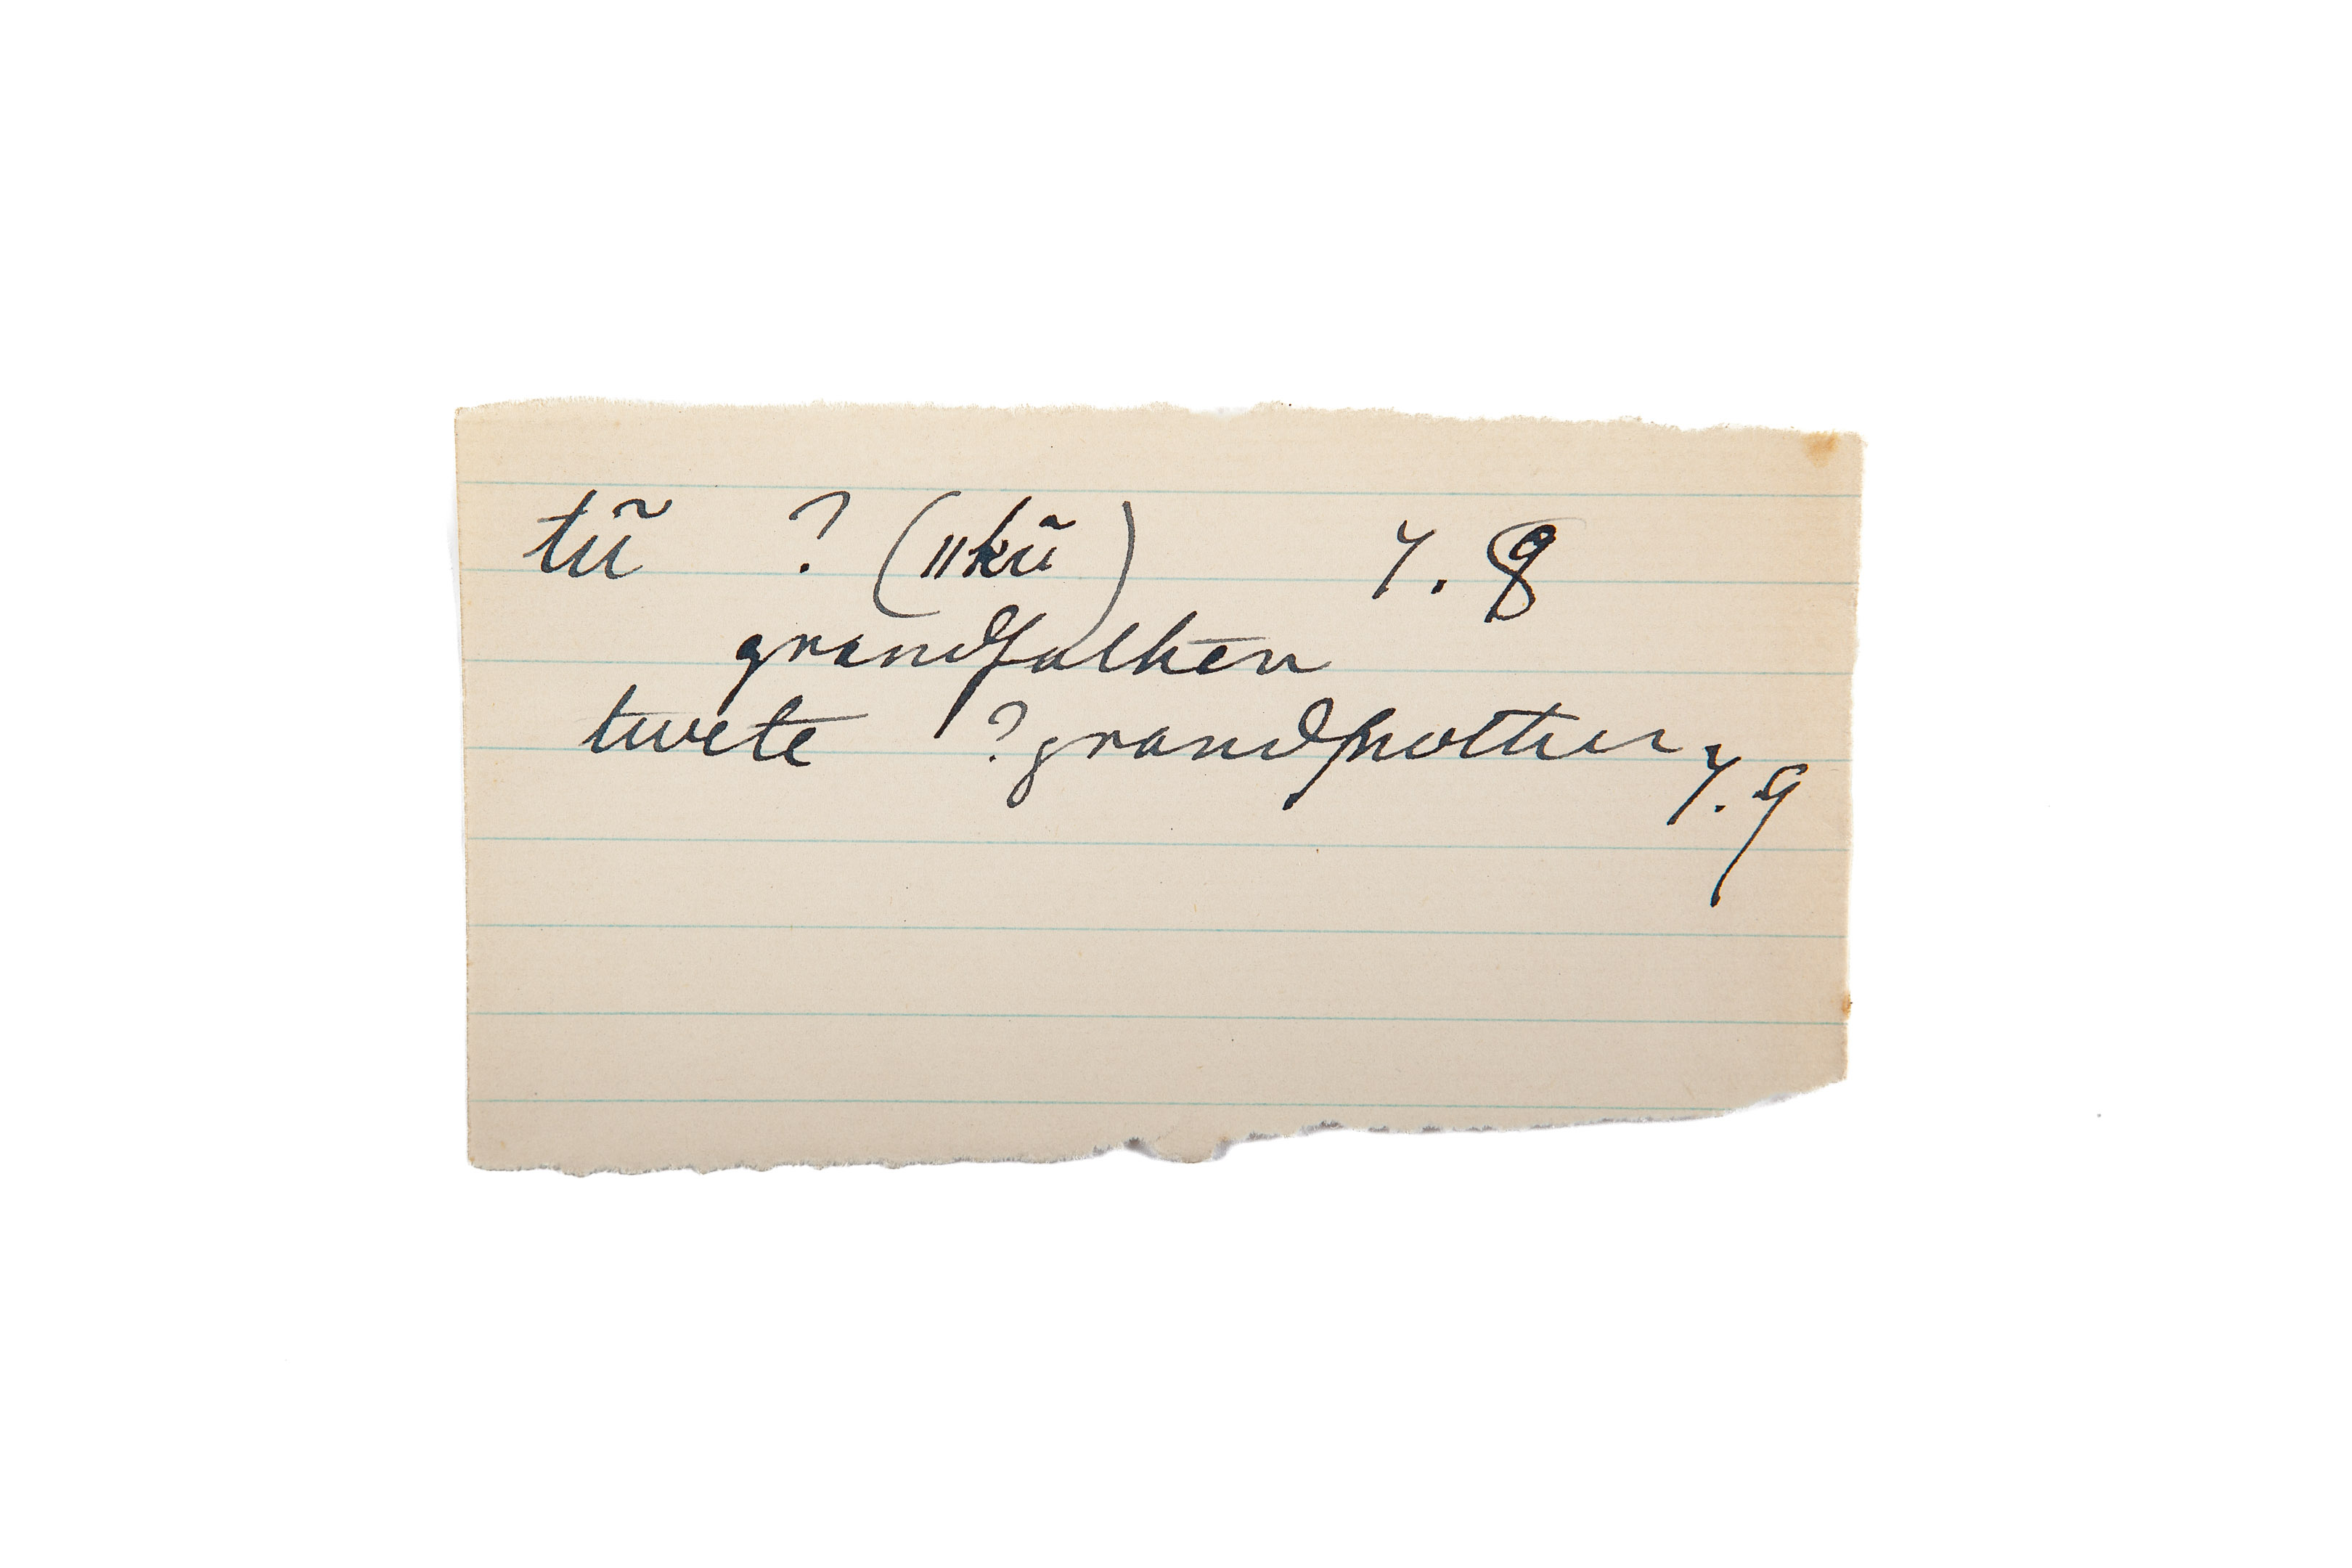 tũ ? (ǁkũ) 7. 8
grandfather
twete ? grandmother
7.9